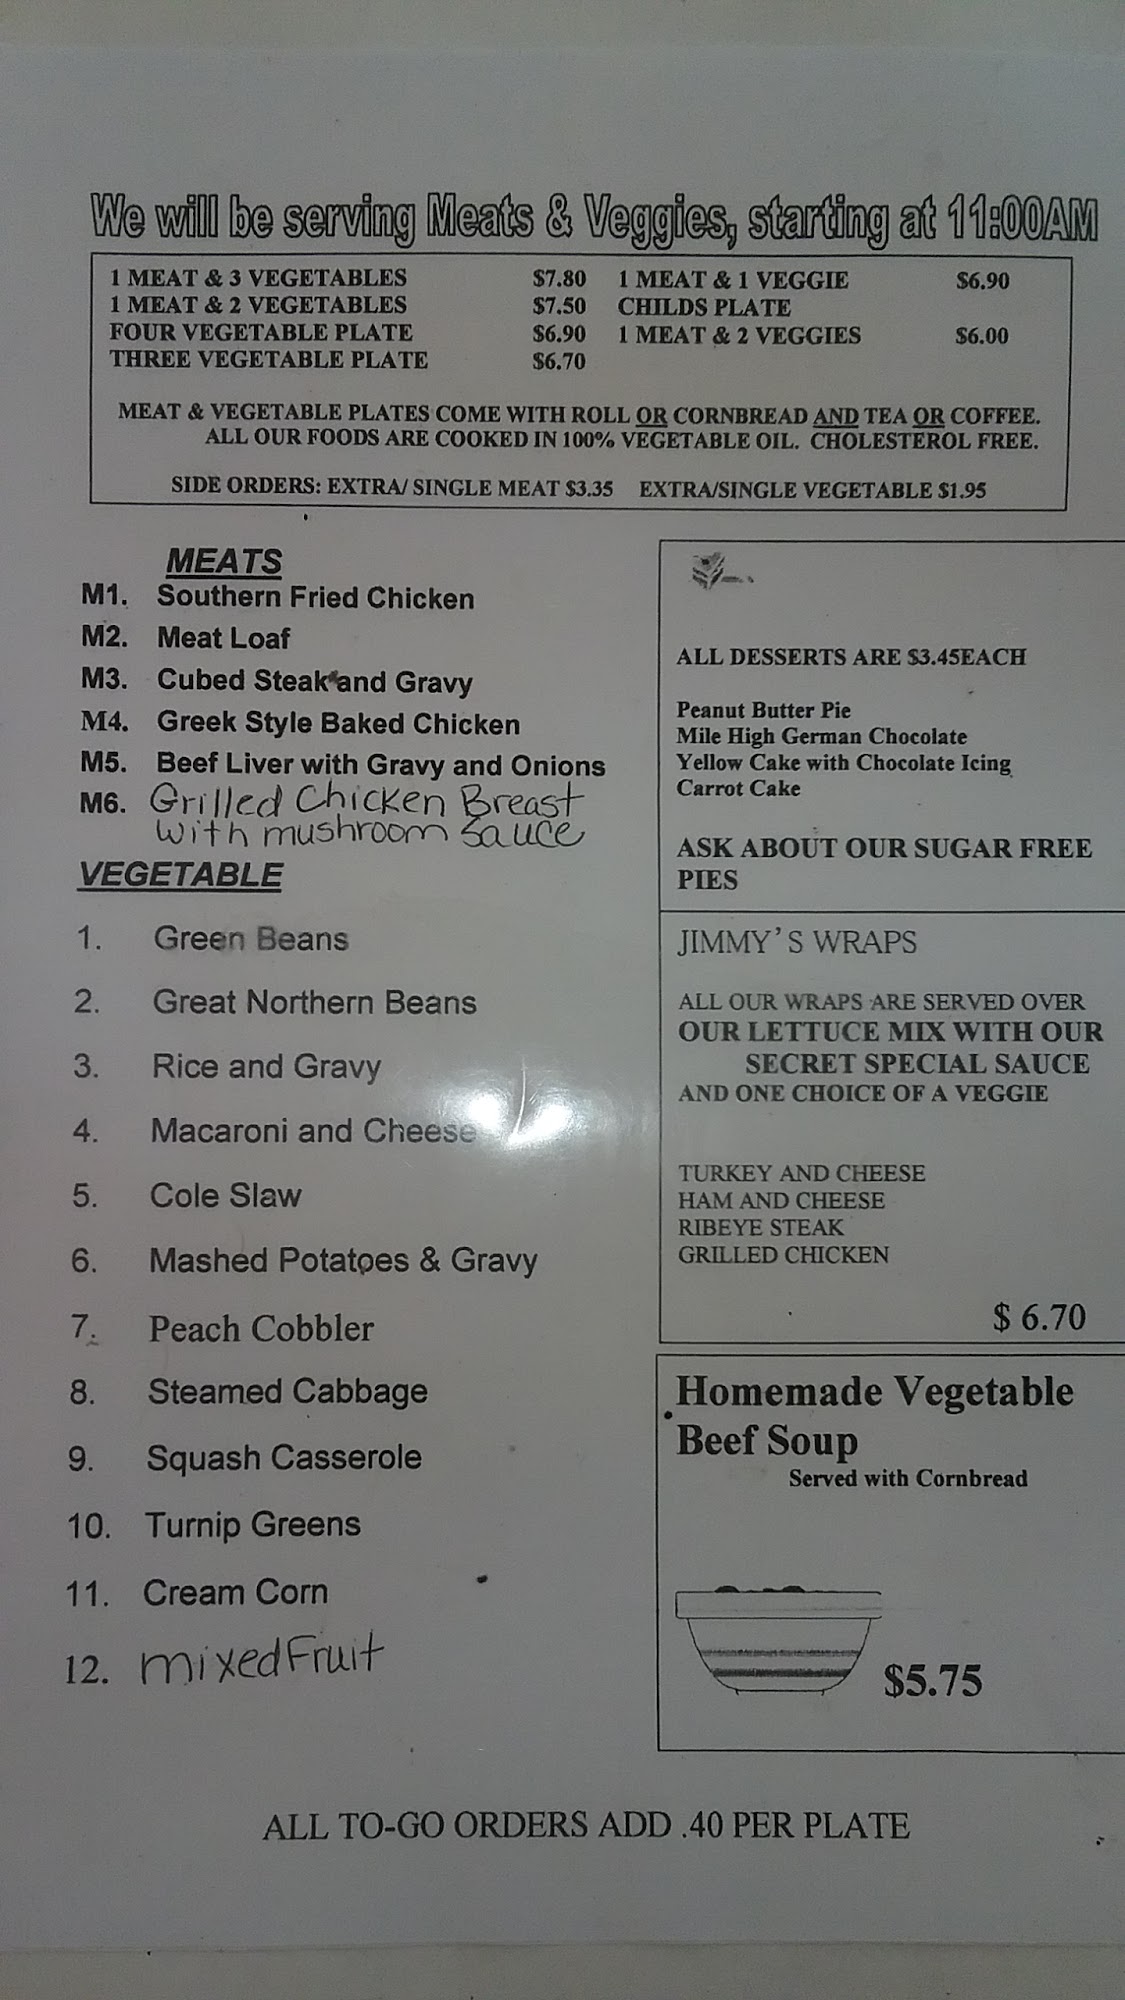 We will be serving Meats & Veggies, starting at 11:00AM
1 MEAT & 3 VEGETABLES $7.80 1 MEAT & 1 VEGGIE $6.90
1 MEAT & 2 VEGETABLES $7.50 CHILDS PLATE
FOUR VEGETABLE PLATE $6.90 1 MEAT & 2 VEGGIES $6.00
THREE VEGETABLE PLATE $6.70
MEAT & VEGETABLE PLATES COME WITH ROLL OR CORNBREAD AND TEA OR COFFEE.
ALL OUR FOODS ARE COOKED IN 100% VEGETABLE OIL. CHOLESTEROL FREE.
SIDE ORDERS: EXTRA/ SINGLE MEAT $3.35 EXTRA/SINGLE VEGETABLE $1.95
MEATS
M1. Southern Fried Chicken
M2. Meat Loaf
M3. Cubed Steak and Gravy
M4. Greek Style Baked Chicken
M5. Beef Liver with Gravy and Onions
M6. Grilled Chicken Breast
with mushroom sauce
VEGETABLE
1. Green Beans
2. Great Northern Beans
3. Rice and Gravy
4. Macaroni and Cheese
5. Cole Slaw
6. Mashed Potatoes & Gravy
7. Peach Cobbler
8. Steamed Cabbage
9. Squash Casserole
10. Turnip Greens
11. Cream Corn
12. mixed Fruit
ALL DESSERTS ARE $3.45EACH
Peanut Butter Pie
Mile High German Chocolate
Yellow Cake with Chocolate Icing
Carrot Cake
ASK ABOUT OUR SUGAR FREE
PIES
JIMMY'S WRAPS
ALL OUR WRAPS ARE SERVED OVER
OUR LETTUCE MIX WITH OUR
SECRET SPECIAL SAUCE
AND ONE CHOICE OF A VEGGIE
TURKEY AND CHEESE
HAM AND CHEESE
RIBEYE STEAK
GRILLED CHICKEN
$ 6.70
Homemade Vegetable
Beef Soup
Served with Cornbread
$5.75
ALL TO-GO ORDERS ADD .40 PER PLATE